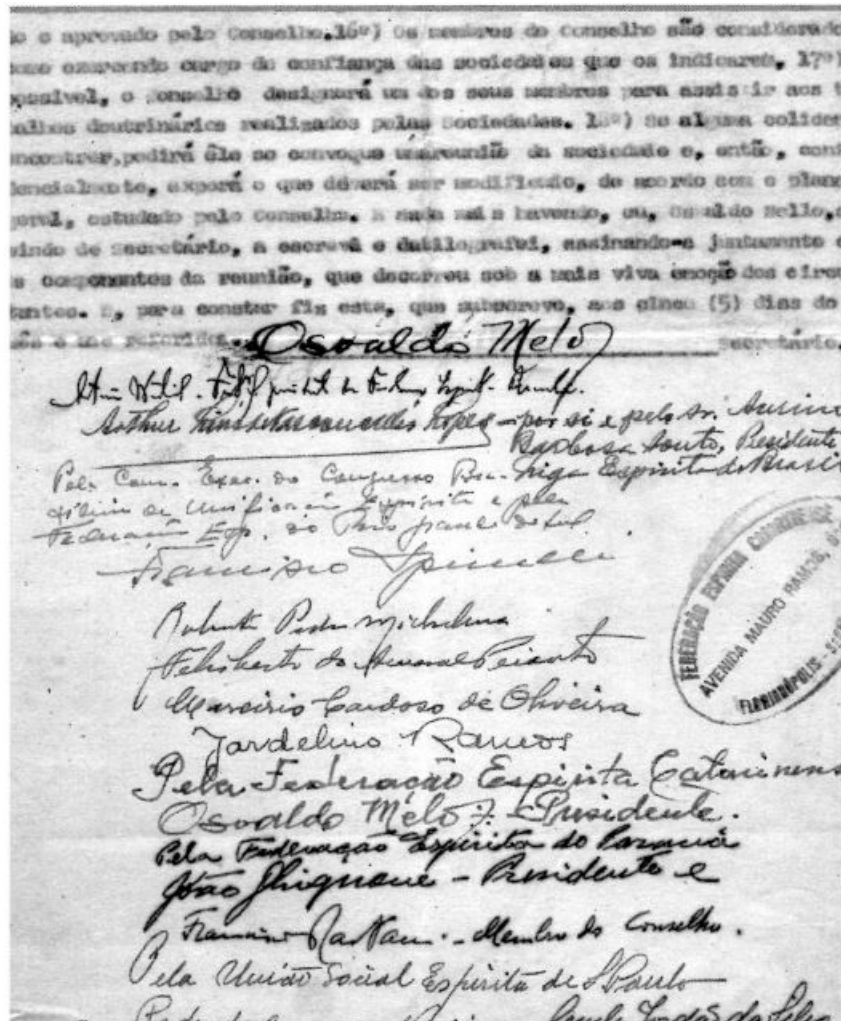 do e aprovado pelo Conselho. 16º) Os membros do Conselho são considerado
como exercendo cargo de confiança das sociedades que os indicarem. 17º)
possivel, o Conselho designará um dos seus membros para assistir aos t
balhos doutrinários realizados pelas Sociedades. 18º) Se alguma
encontrar, pedirá êle se convoque uma reunião da sociedade e, então, conf
dencialmente, exporá o que deverá ser modificado, de acordo com o plano
geral, estudado pelo Conselho. E nada mais havendo, eu, Osvaldo Mello, s
vindo de secretário, a escreví e datilografei, assinando-a juntamente c
s componentes da reunião, que decorreu sob a mais viva emoção dos circu
tantes. E, para constar fiz esta, que subscrevo, aos cinco (5) dias do
mês e ano referidos. Osvaldo Melo secretário.
Arthur Lins de Vasconcellos Lopes - por si e pelo sr. Aurino
Barbosa Souto, Presidente
Liga Espirita do Brasil
Pela Com. Exec. do Congresso Bra-
sileiro de Unificação Espirita e pela
Federação Esp. do Rio Grande do Sul
Francisco Spinelli
Roberto Pedro Michelena
Felisberto do Amaral Peixoto
Marcirio Cardoso de Oliveira
Jardelino Ramos
FEDERAÇÃO ESPIRITA CATARINENSE
AVENIDA MAURO RAMOS,
FLORIANÓPOLIS -
Pela Federação Espirita Catarinens
Osvaldo Melo - Presidente.
Pela Federação Espirita do Paraná
João Ghignone - Presidente e
Francisco - Membro do Conselho.
Pela União Social Espirita de S Paulo
da Silva